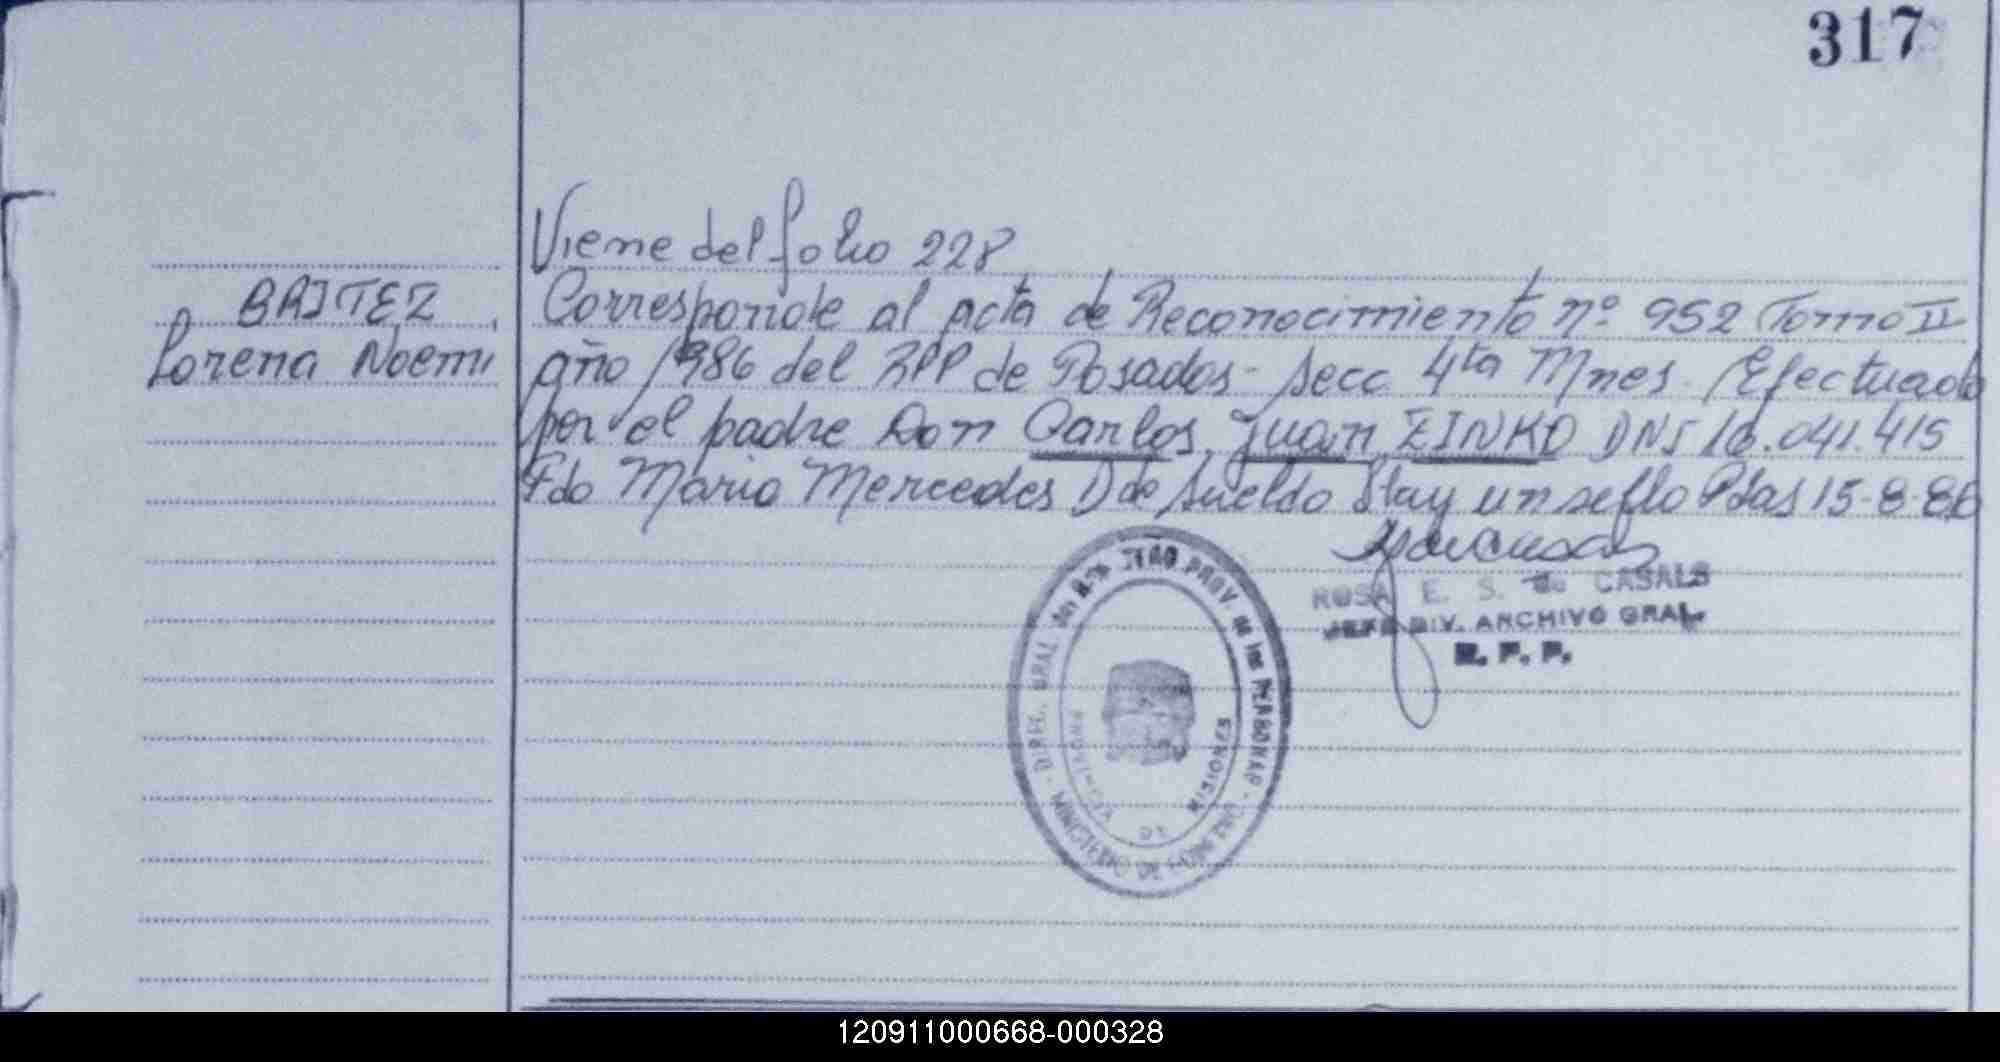 317
Viene del folio 228
BRITEZ
Lorena Noemi
Corresponde al acta de Reconocimiento nº 952 Tomo II
año 1986 del RPP de Posadas - Secc 4ta Mnes. Efectuado
por el padre Don Carlos Juan ZINKO DNI 16.041.415
Fdo Maria Mercedes D de Sueldo Hay un sello Psas 15-8-86
ROSA E. S. de CASALS
JEFE DIV. ARCHIVO GRAL.
R. P. P.
DIREC. GRAL. del PROV. de las PERSONAS
PROVINCIA DE MISIONES
MINISTERIO DE GOBIERNO
120911000668-000328